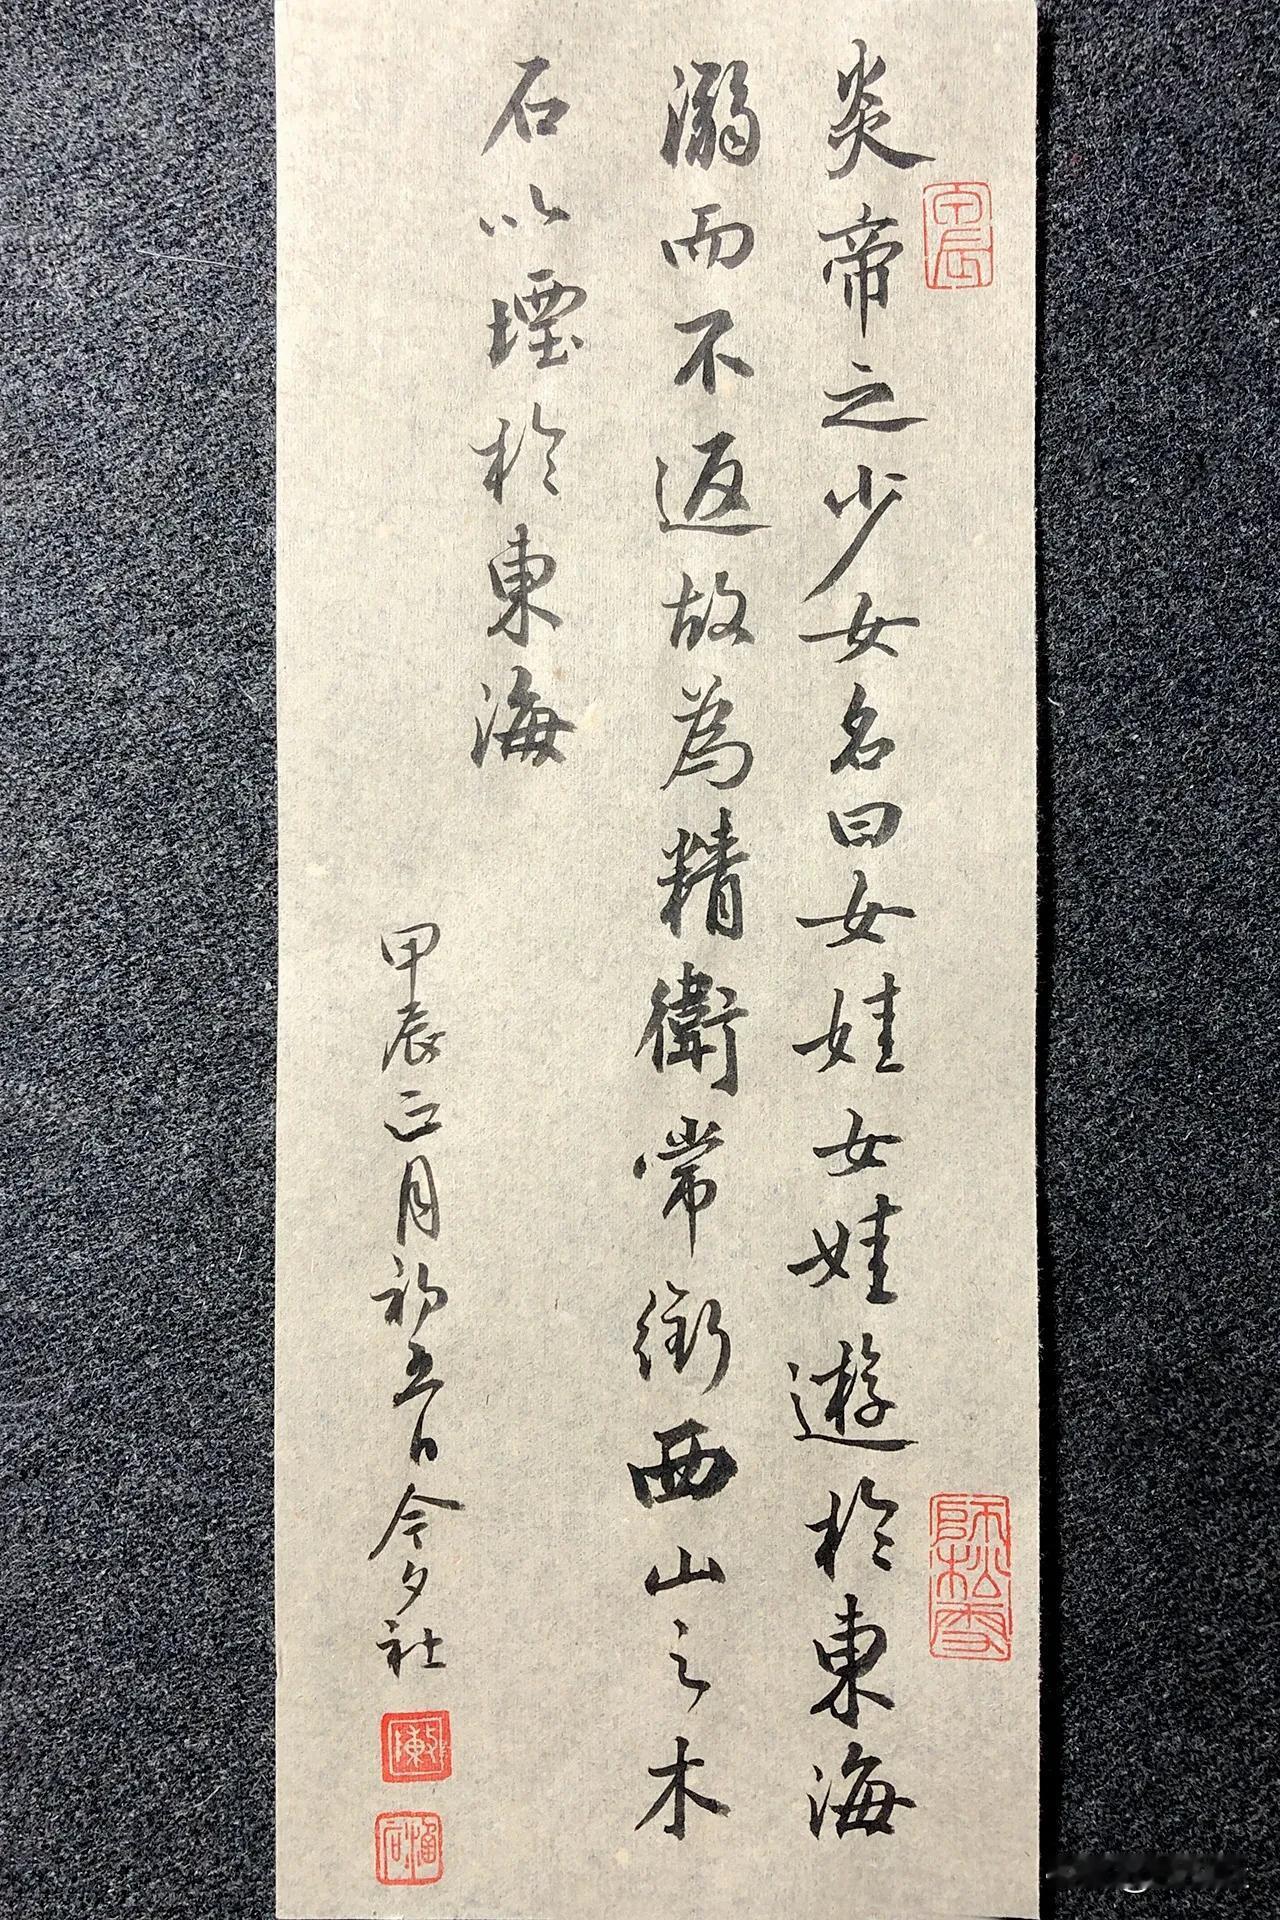 炎帝之少女名曰女娃女娃遊於東海
溺而不返故為精衛常銜西山之木
石以堙於東海
甲辰正月初五日今夕社
甲辰
師松雪